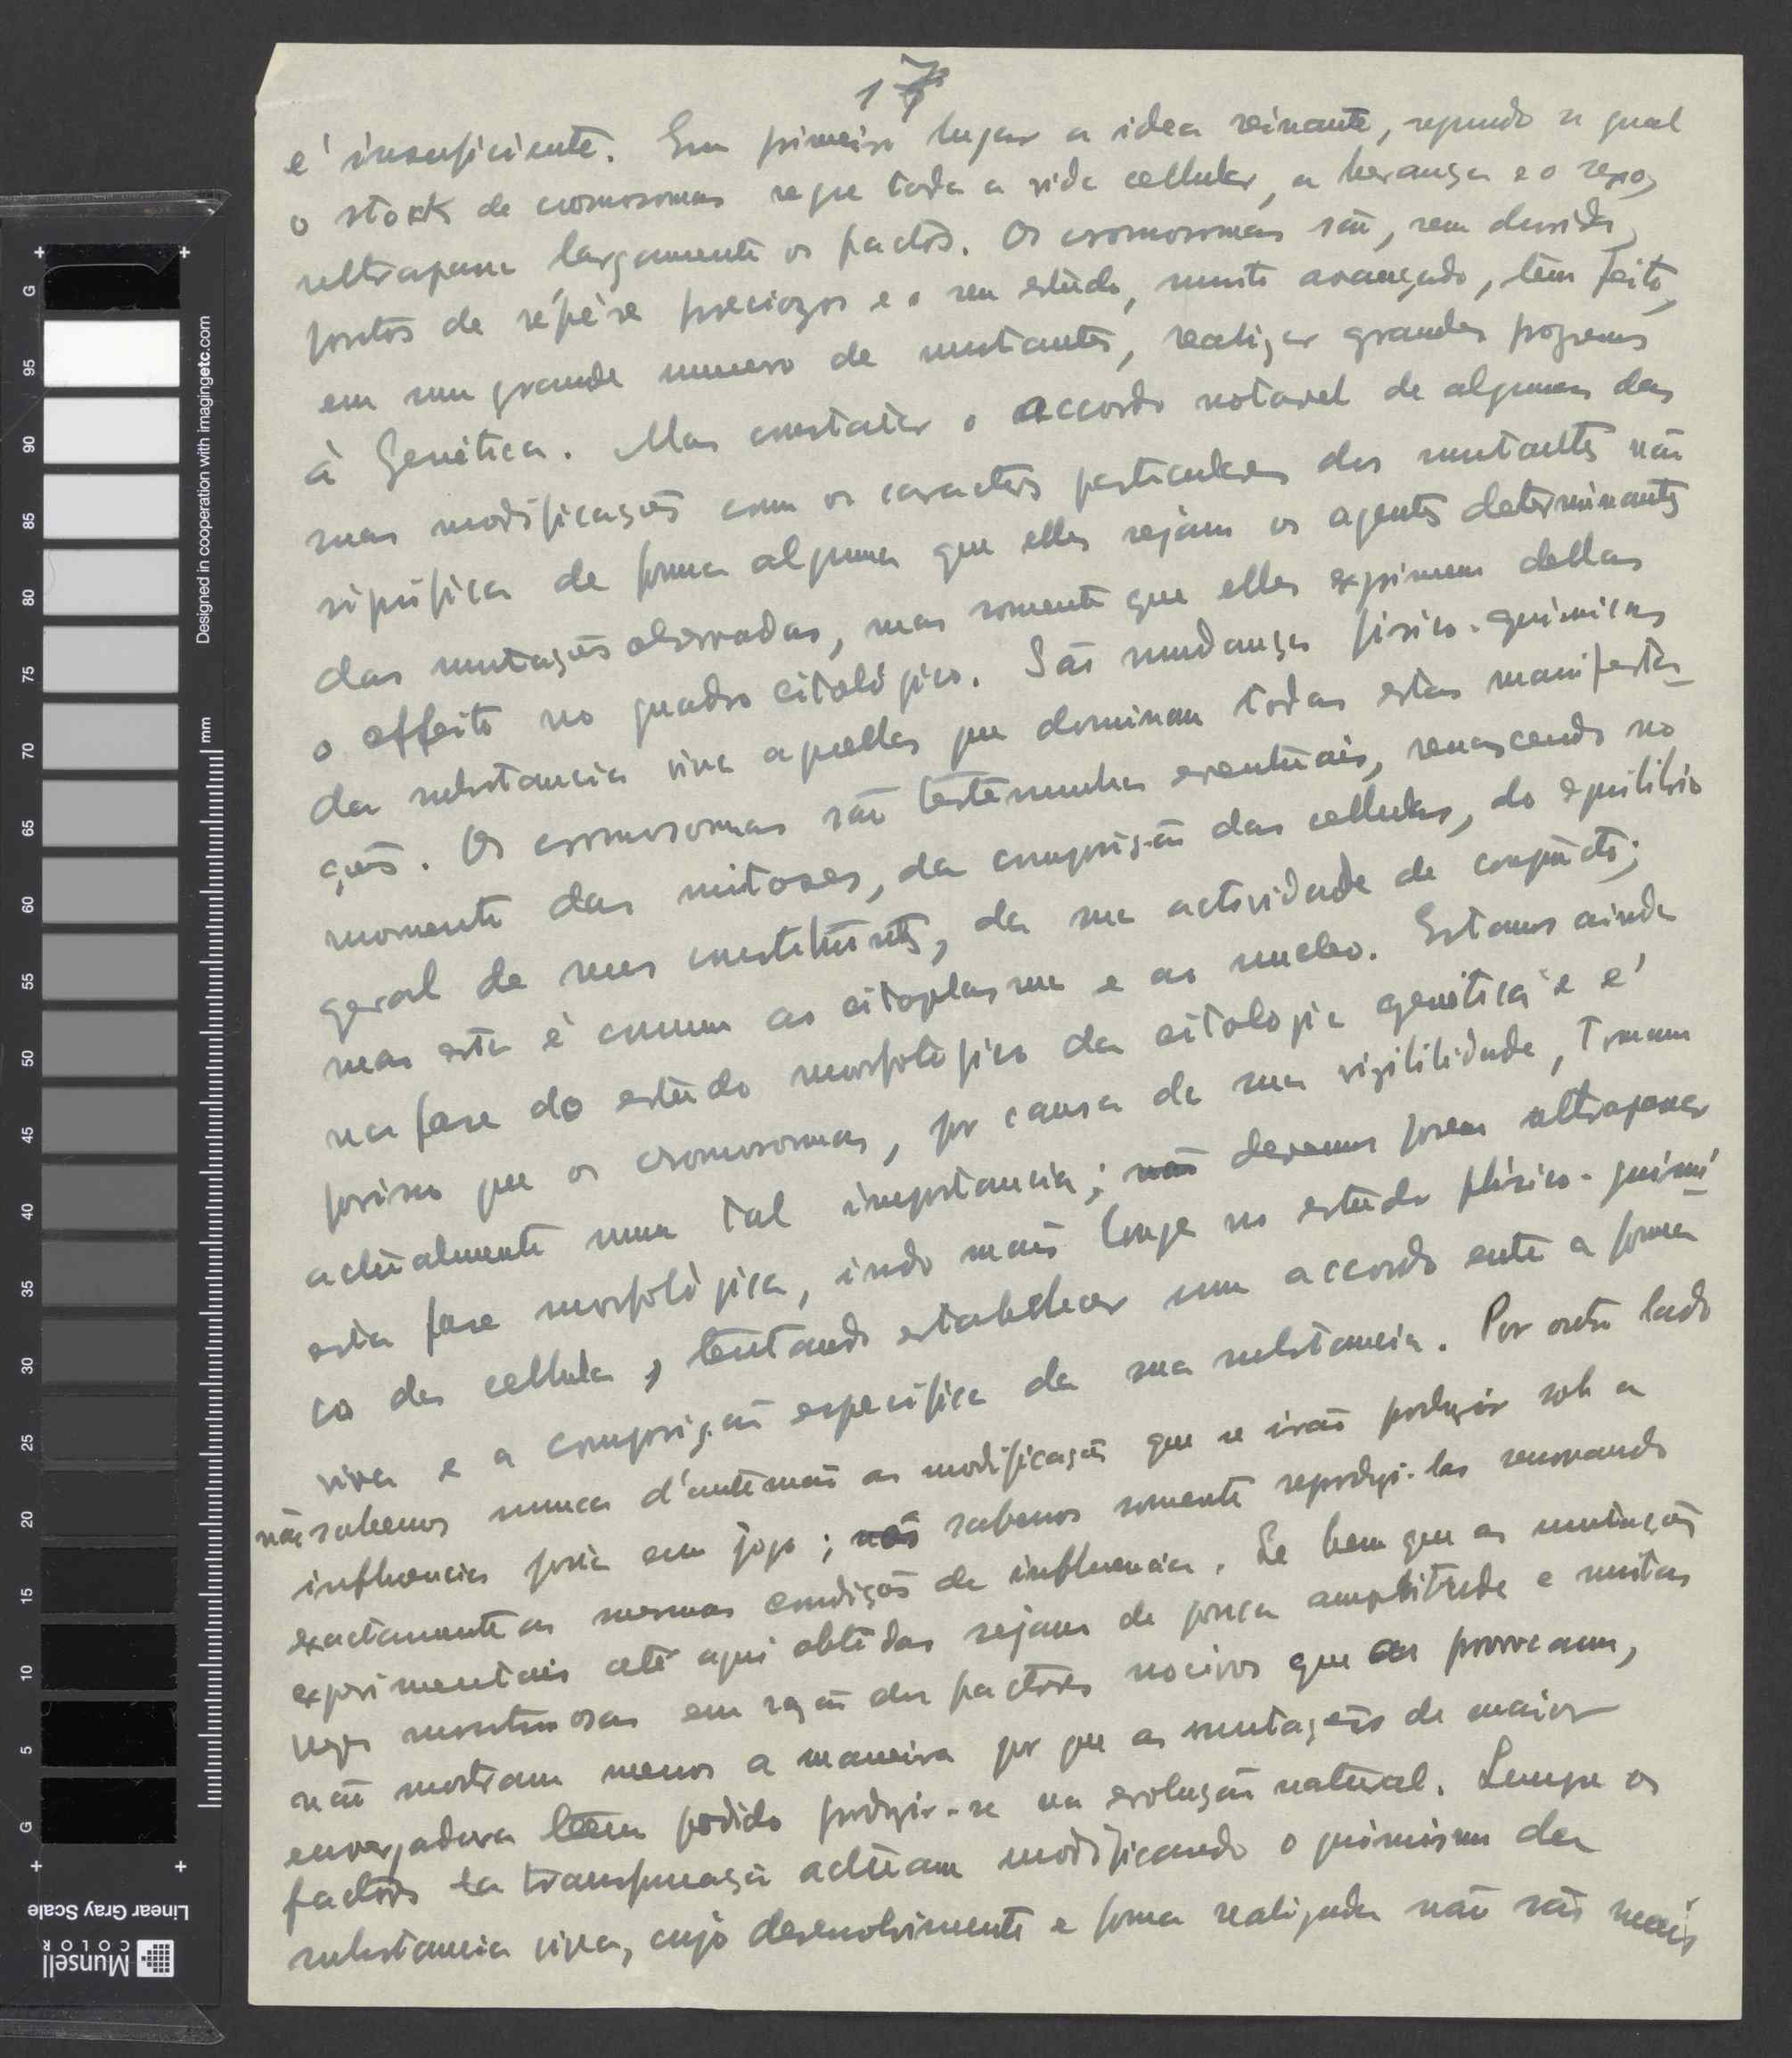 17
é insuficiente. Em primeiro lugar a idea reinante, segundo a qual
o stock de cromosomas rege toda a vida cellular, a herança e o sexo,
ultrapassa largamente os factos. Os cromosomas são, sem duvida,
pontos de répère preciozos e o seu estudo, muito avançado, tem feito,
em um grande numero de mutantes, realizar grandes progressos
à Genética. Mas constatar o accordo notavel de algumas das
suas modificações com os caracteres particulares dos mutantes não
significa de forma alguma que elles sejam os agentes determinantes
das mutações observadas, mas somente que elles exprimem dellas
o effeito no quadro citológico. São mudanças fisico-quimicas
da substancia viva aquellas que dominam todas estas manifesta-
ções. Os cromosomas são testemunhas eventuais, renascendo no
momento das mitoses, da composição das cellulas, do equilibrio
geral de seus constituintes, da sua actividade de conjuncto;
mas esta é comum ao citoplasma e ao nucleo. Estamos ainda
na fase do estudo morfológico da citologia genética e é
por isso que os cromosomas, por causa de sua visibilidade, tomam
actualmente uma tal importancia; não devemos porem ultrapassar
esta fase morfológica, indo mais longe no estudo phisico-quimi-
co da cellula, tentando estabelecer um accordo entre a forma
viva e a composição especifica da sua substancia. Por outro lado
não sabemos nunca d'antemão as modificações que se irão produzir sob a
influencia posta em jogo; nós sabemos somente reproduzi-las renovando
exactamente as mesmas condições de influencia. Se bem que as mutações
experimentais até aqui obtidas sejam de pouca amplitude e muitas
vezes monstruosas em razão dos factores nocivos que as provocam,
não mostram menos a maneira por que as mutações de maior
envergadura têm podido produzir-se na evolução natural. Sempre os
factores da transformação actúam modificando o quimismo da
substancia viva, cujo desenvolvimento e forma realizada não são mais